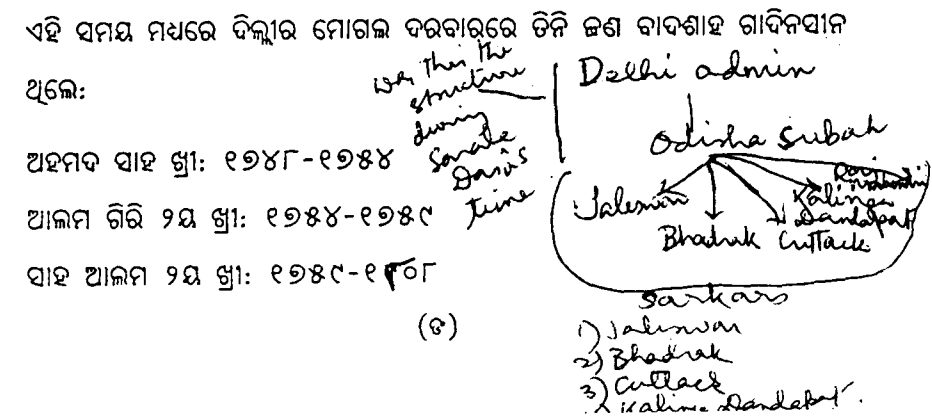 ଏହି ସମୟ ମଧ୍ୟରେ ଦିଲ୍ଲୀର ମୋଗଲ ଦରବାରରେ ତିନି ଜଣ ବାଦଶାହ ଗାଦିନସୀନ
ଥିଲେ:
ଅହମଦ ସାହ ଖ୍ରୀ: ୧୭୪୮-୧୭୫୪
ଆଲମ ଗିରି ୨ୟ ଖ୍ରୀ: ୧୭୫୪-୧୭୫୯
ସାହ ଆଲମ ୨ୟ ଖ୍ରୀ: ୧୭୫୯-୧୮୦୮
(ଙ)
was this the
structure
during
Sarala
Das's
time
Delhi admin
Odisha Subah
Jaleswar
Bhadrak
Cuttack
Kalinga
Dandapat
Sarkars
1) Jaleswar
2) Bhadrak
3) Cuttack
Kalinga Dandapat